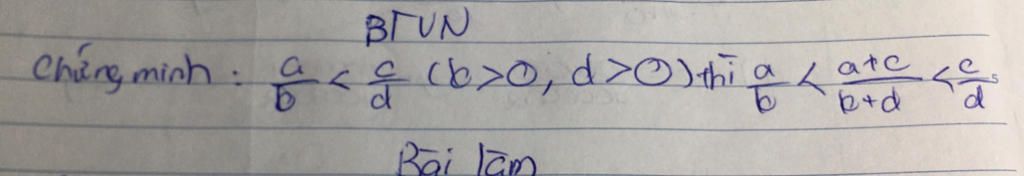 BTVN
Chứng minh : a/b < c/d (b>0, d>0) thì a/b < a+c/b+d < c/d
Bài làm